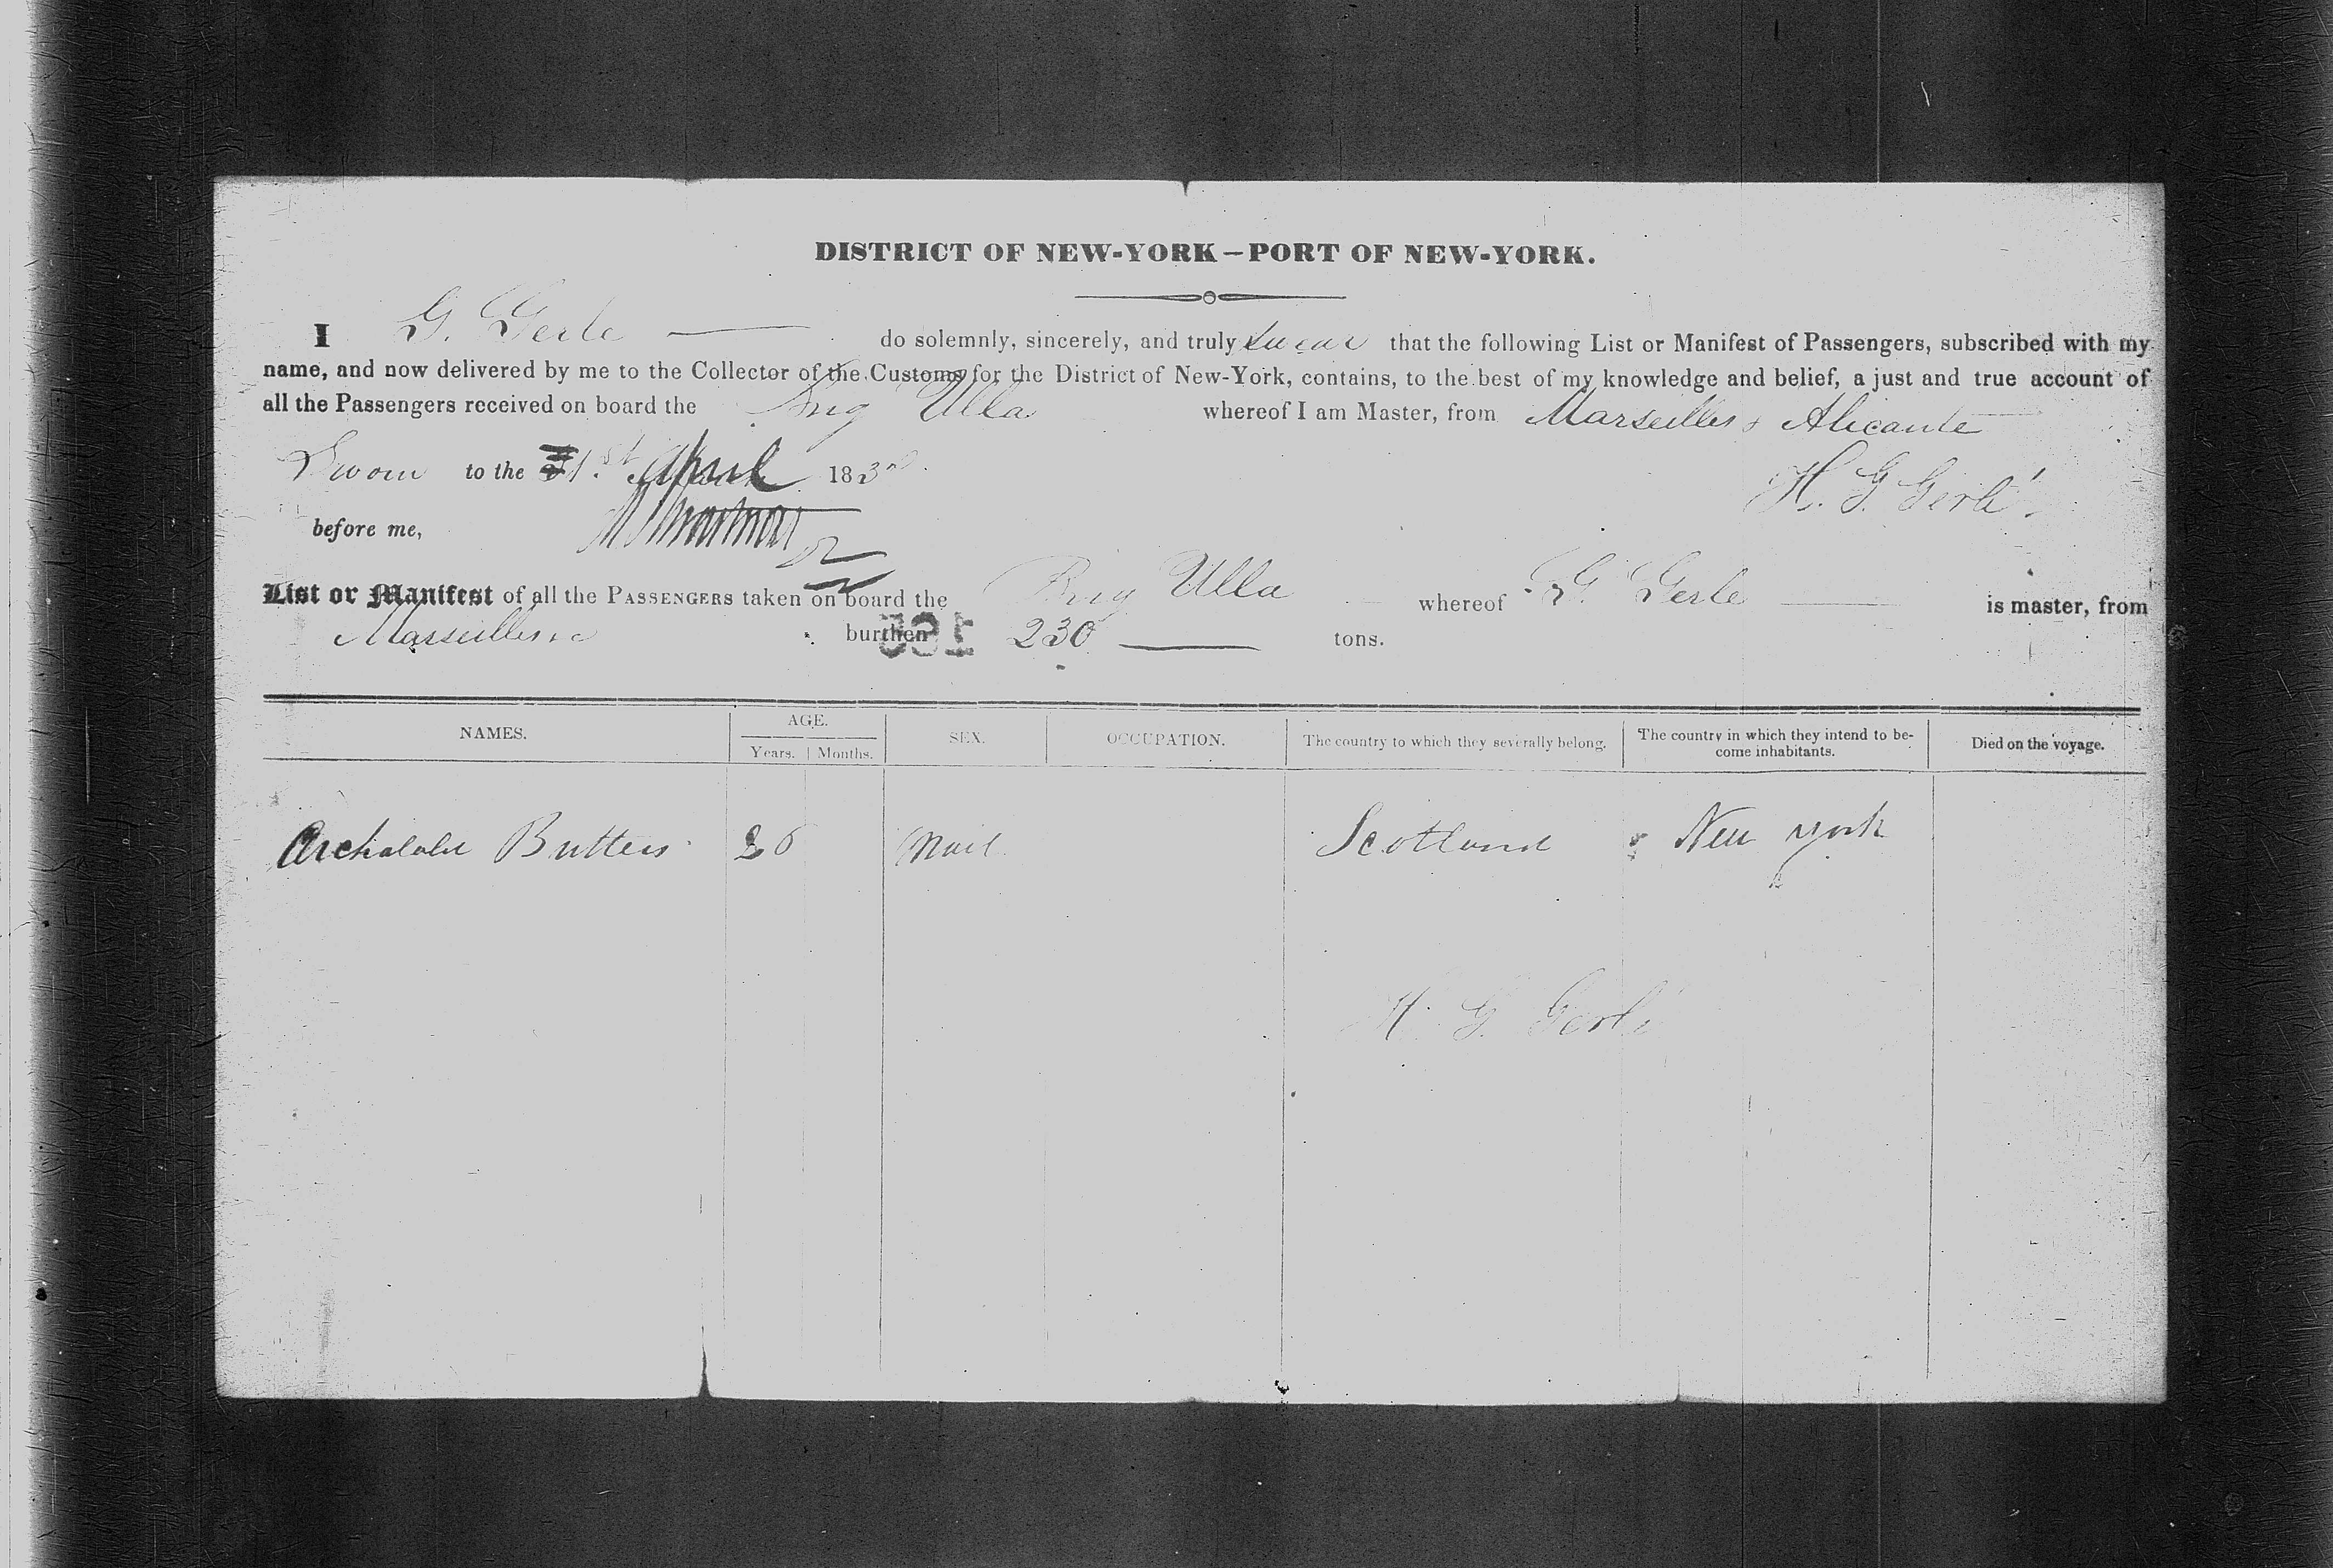 DISTRICT OF NEW-YORK—PORT OF NEW-YORK.
I G. Gerle do solemnly, sincerely, and truly swear that the following List or Manifest of Passengers, subscribed with my
name, and now delivered by me to the Collector of the Customs for the District of New-York, contains, to the best of my knowledge and belief, a just and true account of
all the Passengers received on board the Brig Ulla whereof I am Master, from Marseilles & Alicante
Sworn to the 1st April 183
H. G. Gerlé
before me,
List or Manifest of all the PASSENGERS taken on board the Brig Ulla whereof G. Gerle is master, from
Marseilles burthen 230 tons.
NAMES. AGE. Years. Months. SEX. OCCUPATION. The country to which they severally belong. The country in which they intend to be-
come inhabitants. Died on the voyage.
Butters 26 Mail Scotland New york
H. G. Gerlé